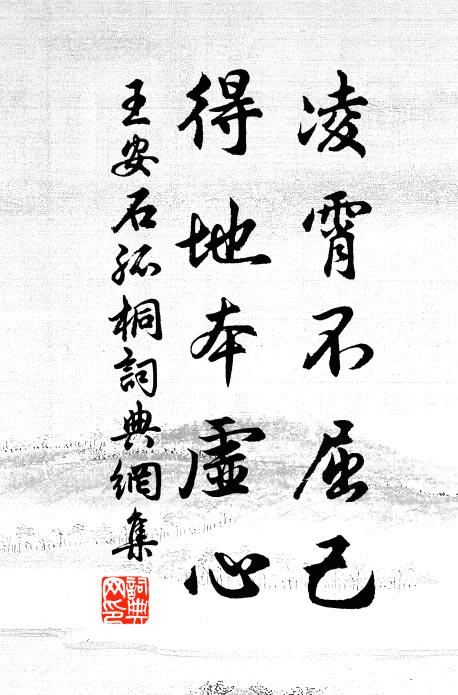 凌霄不屈己
得地本虛心
王安石孤桐詞典網集
詞典
网印